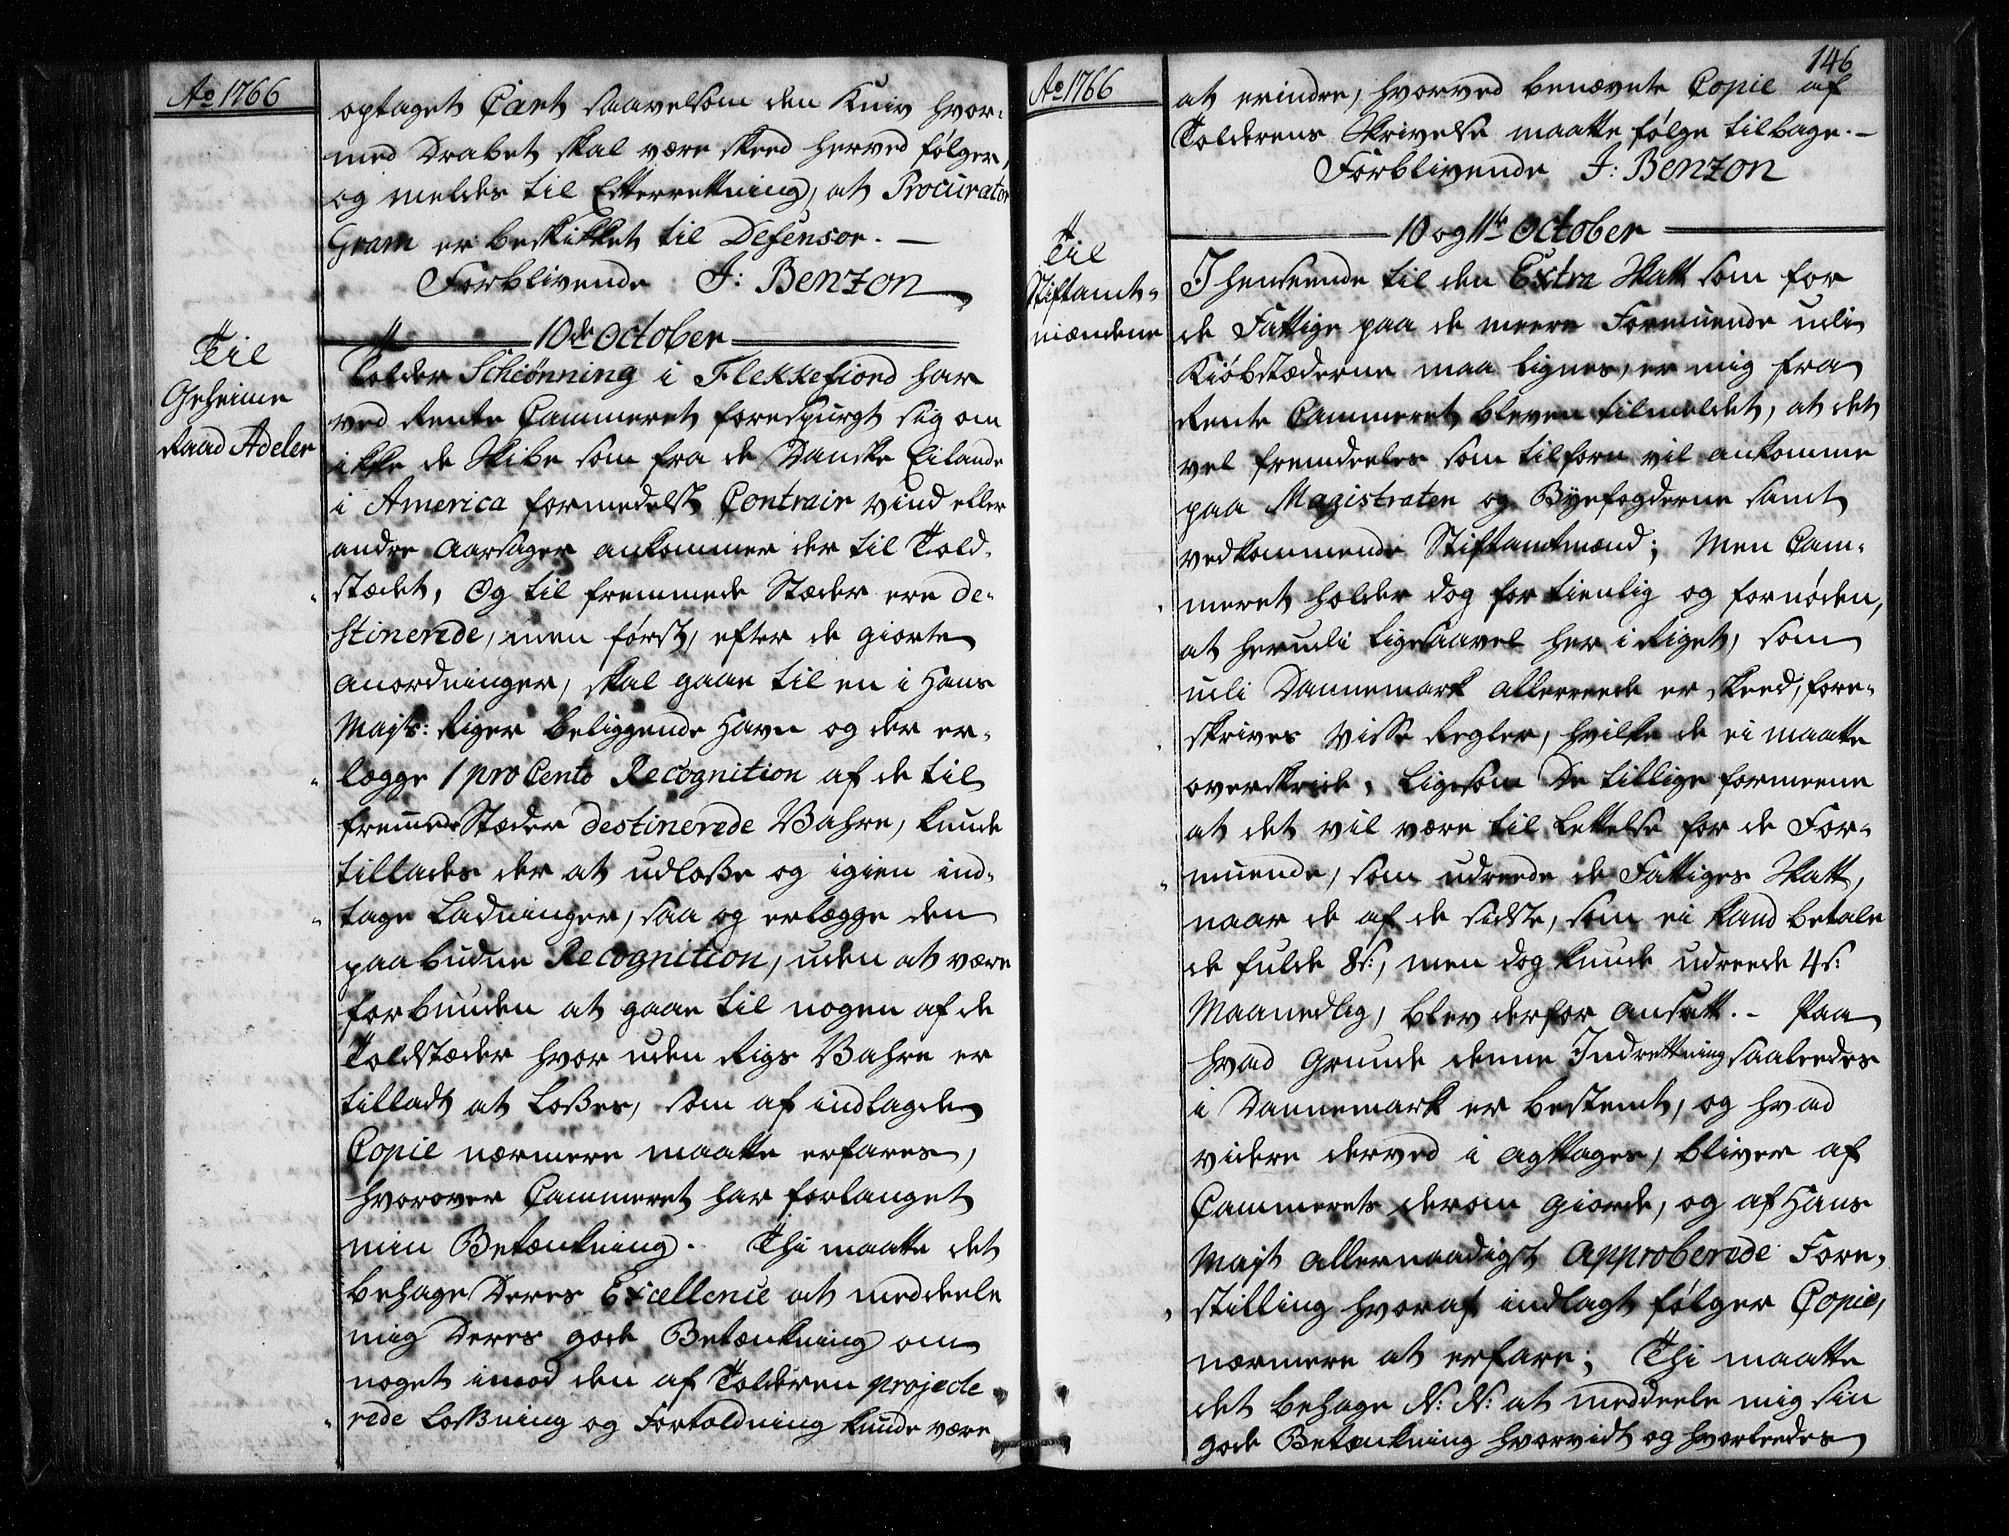 Ao 1766
optaget Cart saavelsom den Kniv hvor-
med Drabet skal være skeed herved følger,
og meldes til Efterrettning, at Procurator
Gram er beskikket til Defensor. —
Forblivende J: Benzon
10de October
Til
Geheime
Raad Adeler
Tolder Schiønning i Flekkefiord har
ved Rente Cammeret forespurgt sig om
ikke de Skibe som fra de Danske Eilande
i America formedelst Contrair Vind eller
andre Aarsager ankommer der til Told-
stædet, og til fremmede Stæder ere de-
stinerede, men først, efter de giorte
Anordninger, skal gaae til en i Hans
Majts: Riger beliggende Havn og der er-
lægge 1 pro Cento Recognition af de til
fremede Stæder destinerede Vahre, kunde
tillades der at udloße og igien ind-
tage Ladninger, saa og erlægge den
paabudne Recognition, uden at være
forbunden at gaae til nogen af de
Toldstæder hvor uden Rigs Vahre er
tilladt at Loßes, som af indlagde
Copie nærmere maatte erfares,
hvorover Cammeret har forlanget
min Betænkning. Thi maatte det
behage Deres Excellence at meddeele
mig Deres gode Betænkning om
noget imod den af Tolderen projecte
rede Loßning og Fortoldning kunde være
Ao 1766
146
at erindre, hvorved benævnte Copie af
Tolderens Skrivelse maatte følge tilbage. —
Forblivende J: Benzon
10 og 11te October
Til
Stiftamt-
mændene
I henseende til den Extra Skatt som for
de Fattige paa de meere Formuende udi
Kiøbstæderne maa lignes, er mig fra
Rente Cammeret bleven tilmeldet, at det
vel fremdeeles som tilforn vil ankomme
paa Magistraten og Byefogderne samt
vedkommende Stiftamtmænd; Men Cam-
meret holder dog for tienlig og fornøden,
at herudi ligesaavel her i Riget, som
udi Dannemark allereede er skeed, fore-
skrives visse Regler, hvilke de ei maatte
overskride, ligesom De tillige formeene
at det vil være til Lettelse for de For-
muende, som udreede de Fattiges Skatt,
naar de af de sidste, som ei kand betale
de fulde 8s:, men dog kunde udreede 4s:
Maanedlig, blev derfor ansatt. - Paa
hvad Grunde denne Indrettning saaleedes
i Dannemark er bestemt, og hvad
videre derved i agttages, bliver af
Cammerets derom giorde, og af Hans
Majst allernaadigst Approberede Fore-
stilling hvoraf indlagt følger Copie,
nærmere at erfare; Thi maatte
det behage N: N: at meddeele mig sin
gode Betænkning hvorvidt og hvorleedes